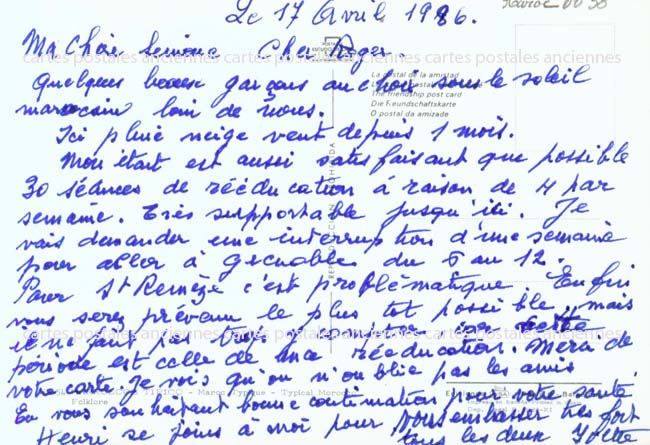 Le 17 Avril 1986.
Maroc 00 58
Ma Chère Simone Cher Roger.
Quelques beaux garçons au choix sous le soleil
marocain loin de nous.
Ici pluie neige vent depuis 1 mois.
Mon état est aussi satisfaisant que possible
30 séances de rééducation à raison de 4 par
semaine. Très supportable jusqu'ici. Je
vais demander une interruption d'une semaine
pour aller à Grenoble du 6 au 12.
Pour St Remèze c'est problématique. Enfin
vous serez prévenu le plus tot possible, mais
il ne faut pas trop compter car cette
période est celle de ma rééducation. Merci de
votre carte. Je vois qu'on n'oublie pas les amis
En vous souhaitant bonne continuation pour votre santé.
Henri se joins à moi pour vous embrasser très fort
tous les deux
cartes postales anciennes cartes postales anciennes cartes postales anciennes
La postal de la amistad
The friendship post card
Die Freundschaftskarte
O postal da amizade
REPRODUCCION PROHIBIDA
Maroc Typique - Typical Morocco
Folklore
cartes postales anciennes cartes postales anciennes cartes postales anciennes